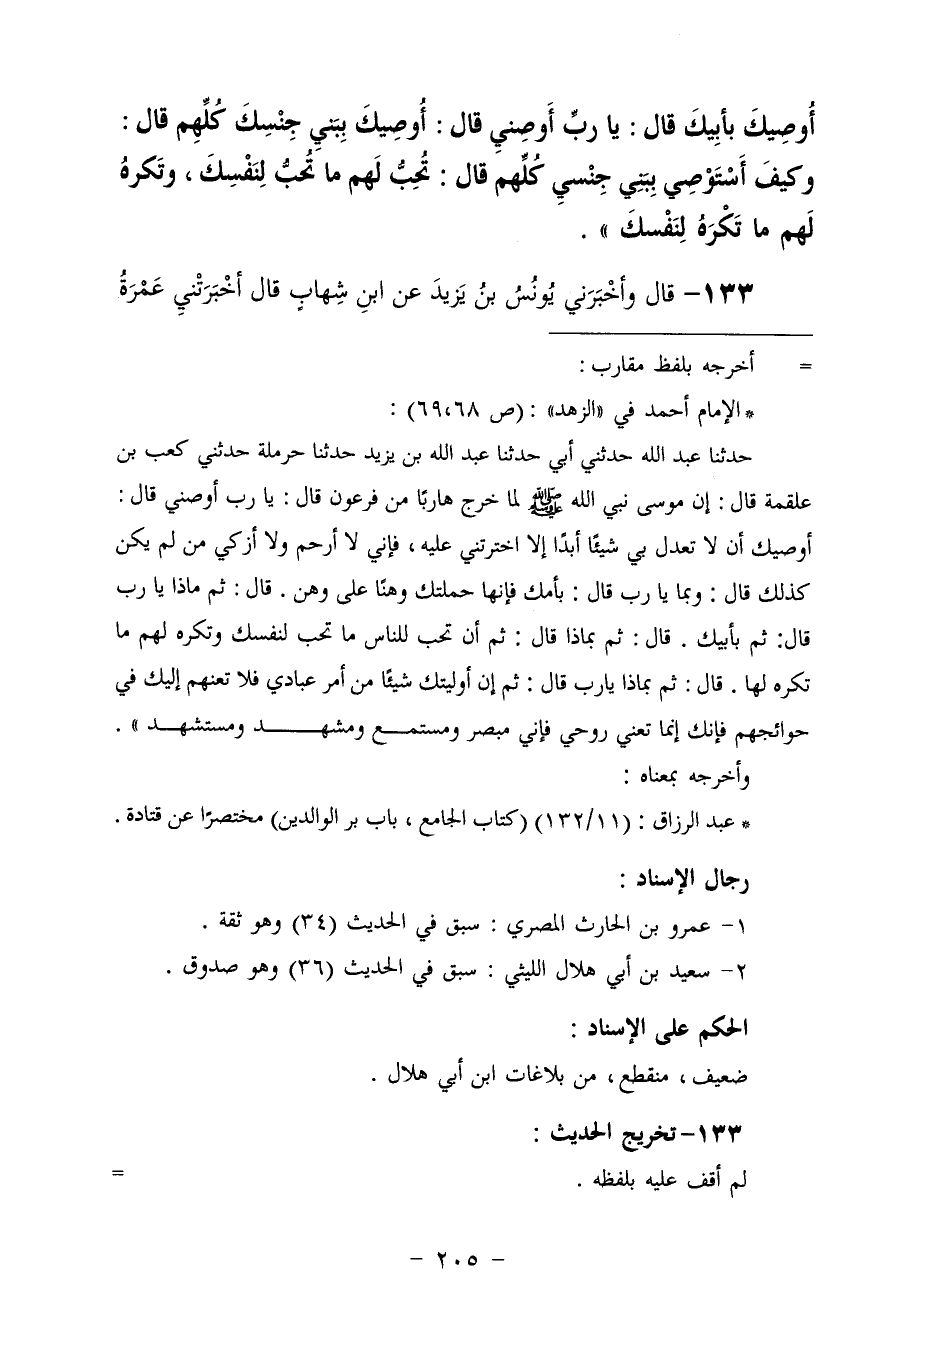 أُوصِيكَ بأبِيكَ قال : يا ربِّ أَوصِني قال : أُوصِيكَ بِبَنِي جِنْسِكَ كُلِّهِم قال :
وكيفَ أَسْتَوْصِي بِبَنِي جِنْسي كُلِّهم قال : تُحِبُّ لَهم ما تُحبُّ لِنَفْسِكَ ، وتَكرهُ
لَهم ما تَكْرَهُ لِنَفْسكَ » .
١٣٣- قال وأخْبَرَني يُونُسُ بنُ يَزِيدَ عن ابنِ شِهابٍ قال أخْبَرَتْني عَمْرَةُ
= أخرجه بلفظ مقارب :
* الإمام أحمد في «الزهد» : (ص ٦٩،٦٨) :
حدثنا عبد الله حدثني أبي حدثنا عبد الله بن يزيد حدثنا حرملة حدثني كعب بن
علقمة قال : إن موسى نبي الله ﷺ لما خرج هاربًا من فرعون قال : يا رب أوصني قال :
أوصيك أن لا تعدل بي شيئًا أبدًا إلا اخترتني عليه ، فإني لا أرحم ولا أزكي من لم يكن
كذلك قال : وبما يا رب قال : بأمك فإنها حملتك وهنًا على وهن . قال : ثم ماذا يا رب
قال: ثم بأبيك . قال : ثم بماذا قال : ثم أن تحب للناس ما تحب لنفسك وتكره لهم ما
تكره لها . قال : ثم بماذا يارب قال : ثم إن أوليتك شيئًا من أمر عبادي فلا تعنهم إليك في
حوائجهم فإنك إنما تعني روحي فإني مبصر ومستمــع ومشهــــد ومستشهــد » .
وأخرجه بمعناه :
* عبد الرزاق : (١٣٢/١١) (كتاب الجامع ، باب بر الوالدين) مختصرًا عن قتادة .
رجال الإسناد :
١- عمرو بن الحارث المصري : سبق في الحديث (٣٤) وهو ثقة .
٢- سعيد بن أبي هلال الليثي : سبق في الحديث (٣٦) وهو صدوق .
الحكم على الإسناد :
ضعيف ، منقطع ، من بلاغات ابن أبي هلال .
١٣٣- تخريج الحديث :
لم أقف عليه بلفظه . =
- ٢٠٥ -